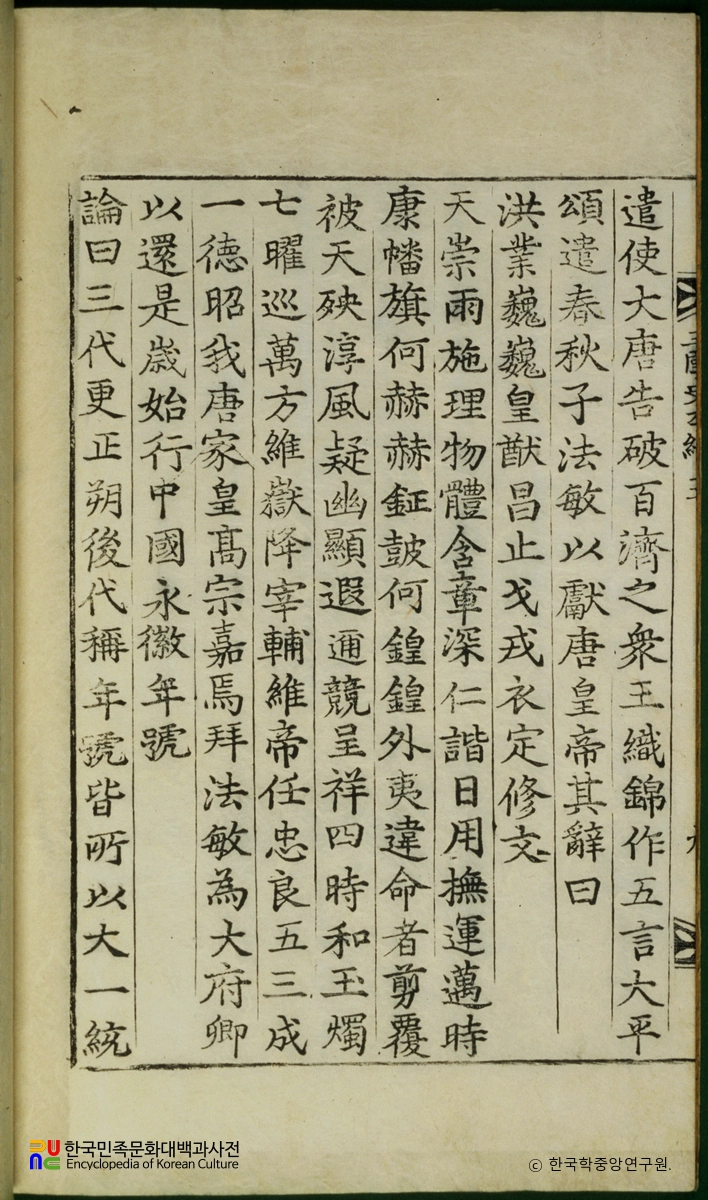 遣使大唐告破百濟之衆王織錦作五言大平
頌遣春秋子法敏以獻唐皇帝其辭曰
洪業巍巍皇猷昌止戈戎衣定修文
天崇雨施理物體含章深仁諧日用撫運邁時
康幡旗何赫赫鉦皷何鍠鍠外夷違命者剪覆
被天殃淳風疑幽顯遐邇競呈祥四時和玉燭
七曜巡萬方維嶽降宰輔維帝任忠良五三成
一德昭我唐家皇髙宗嘉焉拜法敏為大府卿
以還是歲始行中國永徽年號
論曰三代更正朔後代稱年號皆所以大一統
한국민족문화대백과사전
Encyclopedia of Korean Culture
© 한국학중앙연구원.